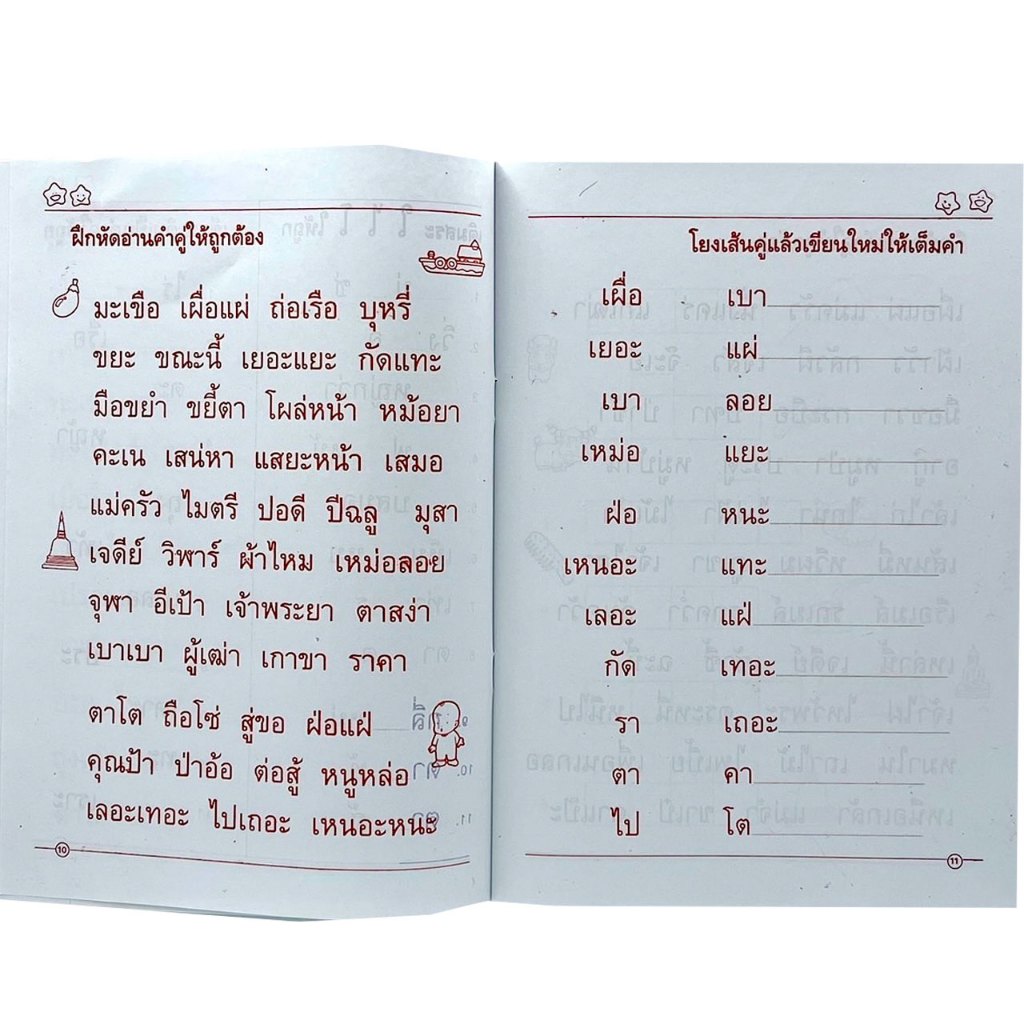 ฝึกหัดอ่านคำคู่ให้ถูกต้อง
มะเขือ เผื่อแผ่ ถ่อเรือ บุหรี่
ขยะ ขณะนี้ เยอะแยะ กัดแทะ
มือขยำ ขยี้ตา โผล่หน้า หม้อยา
คะเน เสน่หา แสยะหน้า เสมอ
แม่ครัว ไมตรี ปอดี ปีฉลู มุสา
เจดีย์ วิพาร์ ผ้าไหม เหม่อลอย
จุฬา อีเป้า เจ้าพระยา ตาสง่า
เบาเบา ผู้เฒ่า เกาขา ราคา
ตาโต ถือโซ่ สู่ขอ ฝ่อแฝ่
คุณป้า ป่าอ้อ ต่อสู้ หนูหล่อ
เลอะเทอะ ไปเถอะ เหนอะหนะ
10
โยงเส้นคู่แล้วเขียนใหม่ให้เต็มคำ
เผื่อ เบา
เยอะ แผ่
เบา ลอย
เหม่อ แยะ
ฝ่อ หนะ
เหนอะ แทะ
เลอะ แฝ่
กัด เทอะ
รา เถอะ
ตา คา
ไป โต
11